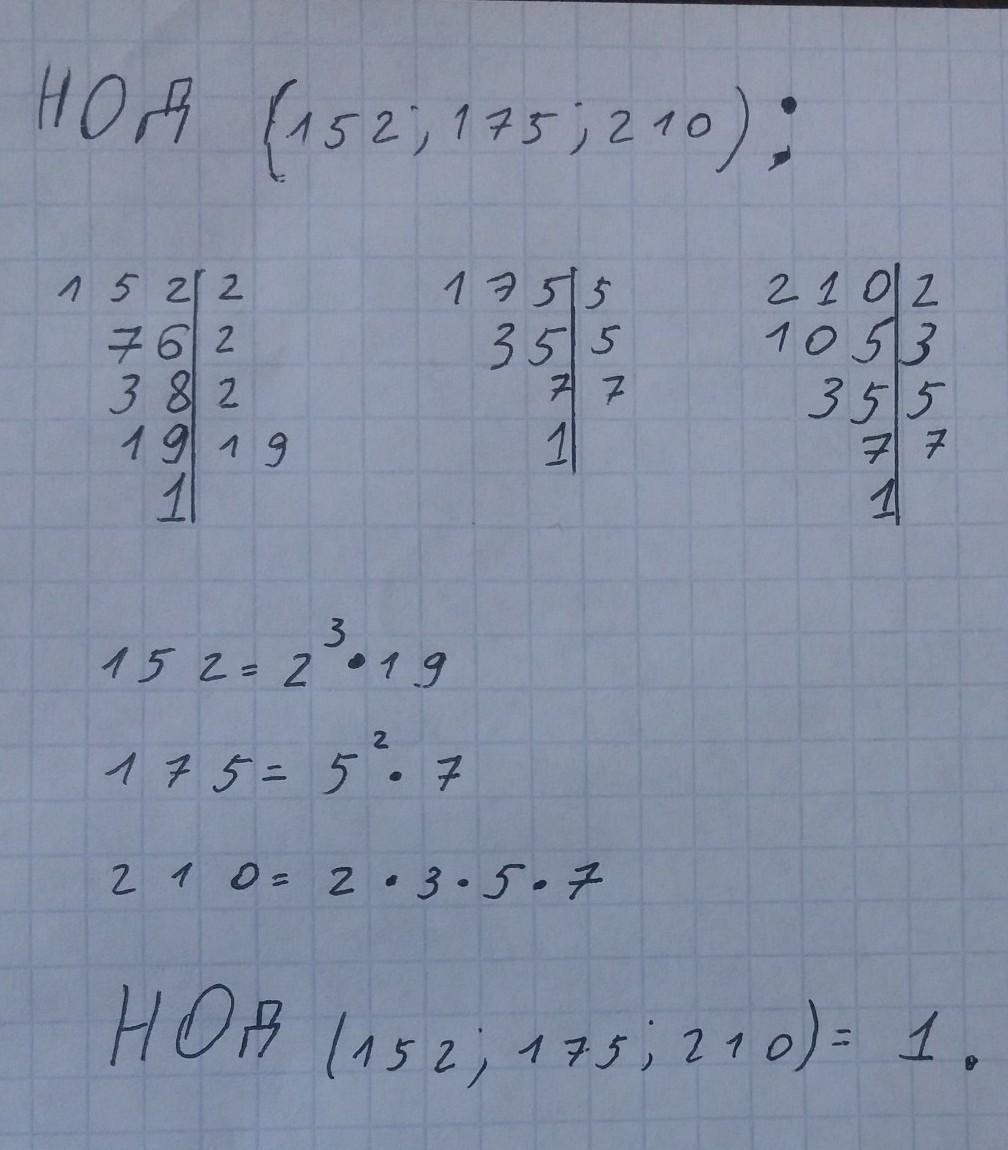 НОД (152; 175; 210);
152|2 175|5 210|2
76|2 35|5 105|3
38|2 7|7 35|5
19|19 1| 7|7
1| 1|
152 = 2³ · 19
175 = 5² · 7
210 = 2 · 3 · 5 · 7
НОД (152; 175; 210) = 1.